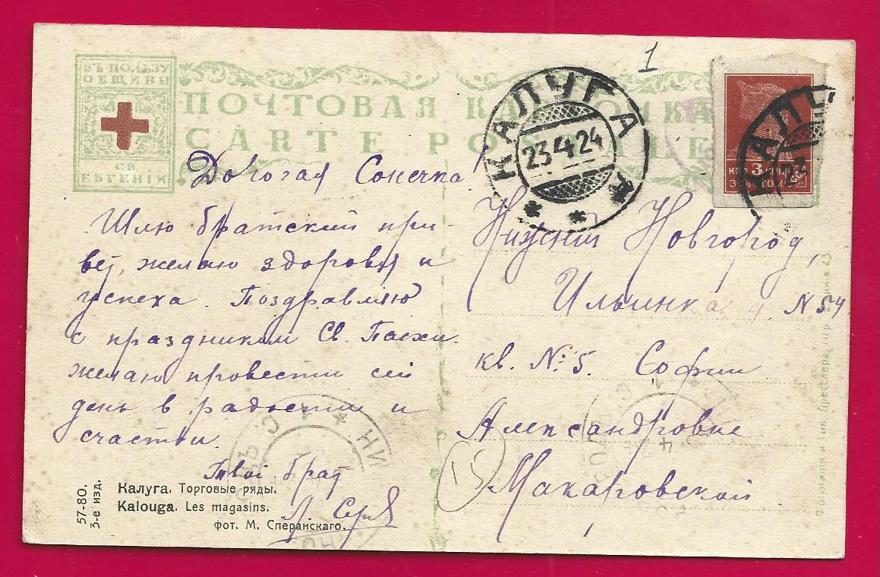 ВЪ ПОЛЬЗУ
ОБЩИНЫ
СВ.
ЕВГЕНІИ
ПОЧТОВАЯ К
CARTE PO LE
1
КАЛУГА
23 4 24
КАЛУ
23
3
Дорогая Сонечка!
Шлю братский при-
вет, желаю здоровья и
успеха. Поздравляю
с праздником Св. Пасхи.
желаю провести сей
день в радости и
счастьи.
Твой брат
Нижний Новгород,
Ильинка д. N 54
кв. № 5. Софии
Александровне
Макаровской
15
57-80.
3-е изд.
Калуга. Торговые ряды.
Kalouga. Les magasins.
фот. М. Сперанскаго.